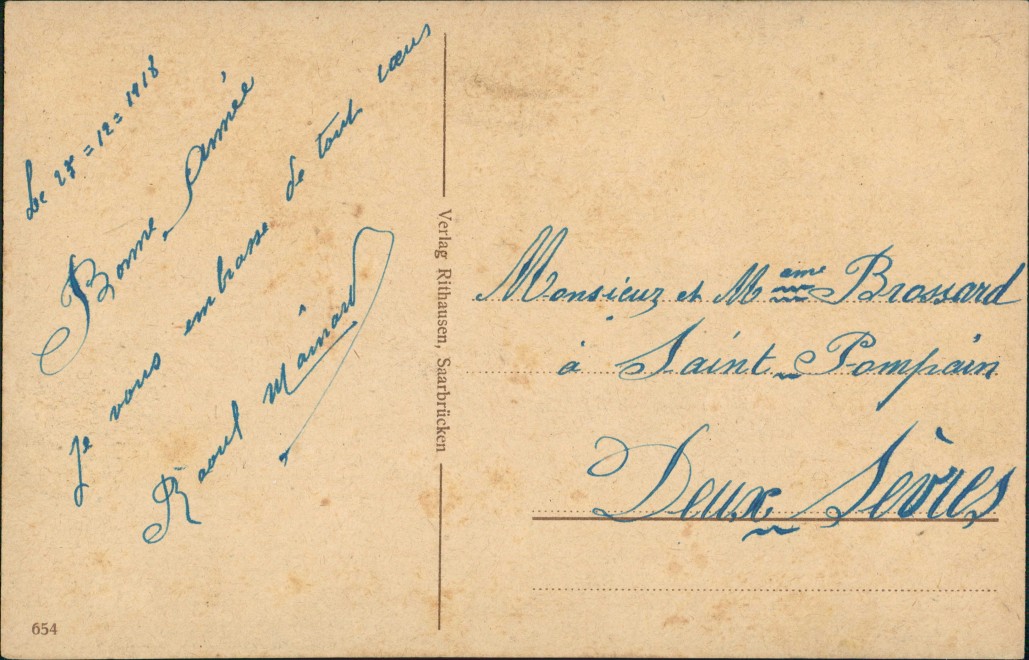 Le 28=12=1918
Bonne Année
Je vous embrasse de tout cœus
Raoul Maînard
Verlag Rithausen, Saarbrücken
Monsieur et Mame Brossard
à Saint-Pompain
Deux-Sèvres
654